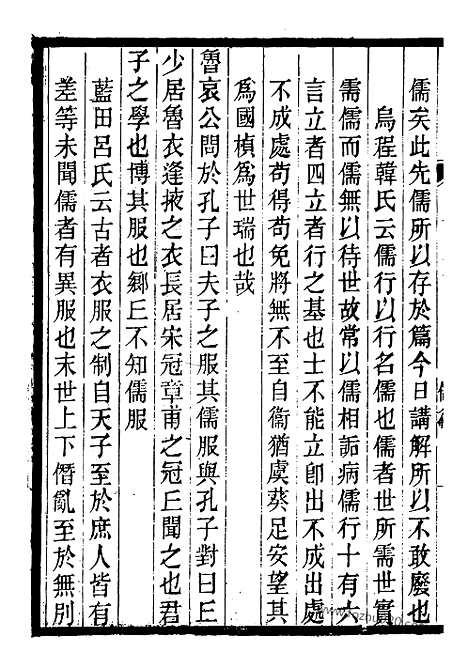 儒矣此先儒所以存於篇今日講解所以不敢廢也
烏程韓氏云儒行以行名儒也儒者世所需世實
需儒而儒無以待世故常以儒相詬病儒行十有六
言立者四立者行之基也士不能立卽出不成出處
不成處苟得苟免將無不至自衞猶虞葵足安望其
爲國楨爲世瑞也哉
魯哀公問於孔子曰夫子之服其儒服與孔子對曰丘
少居魯衣逢掖之衣長居宋冠章甫之冠丘聞之也君
子之學也博其服也鄉丘不知儒服
藍田呂氏云古者衣服之制自天子至於庶人皆有
差等未聞儒者有異服也末世上下僭亂至於無別